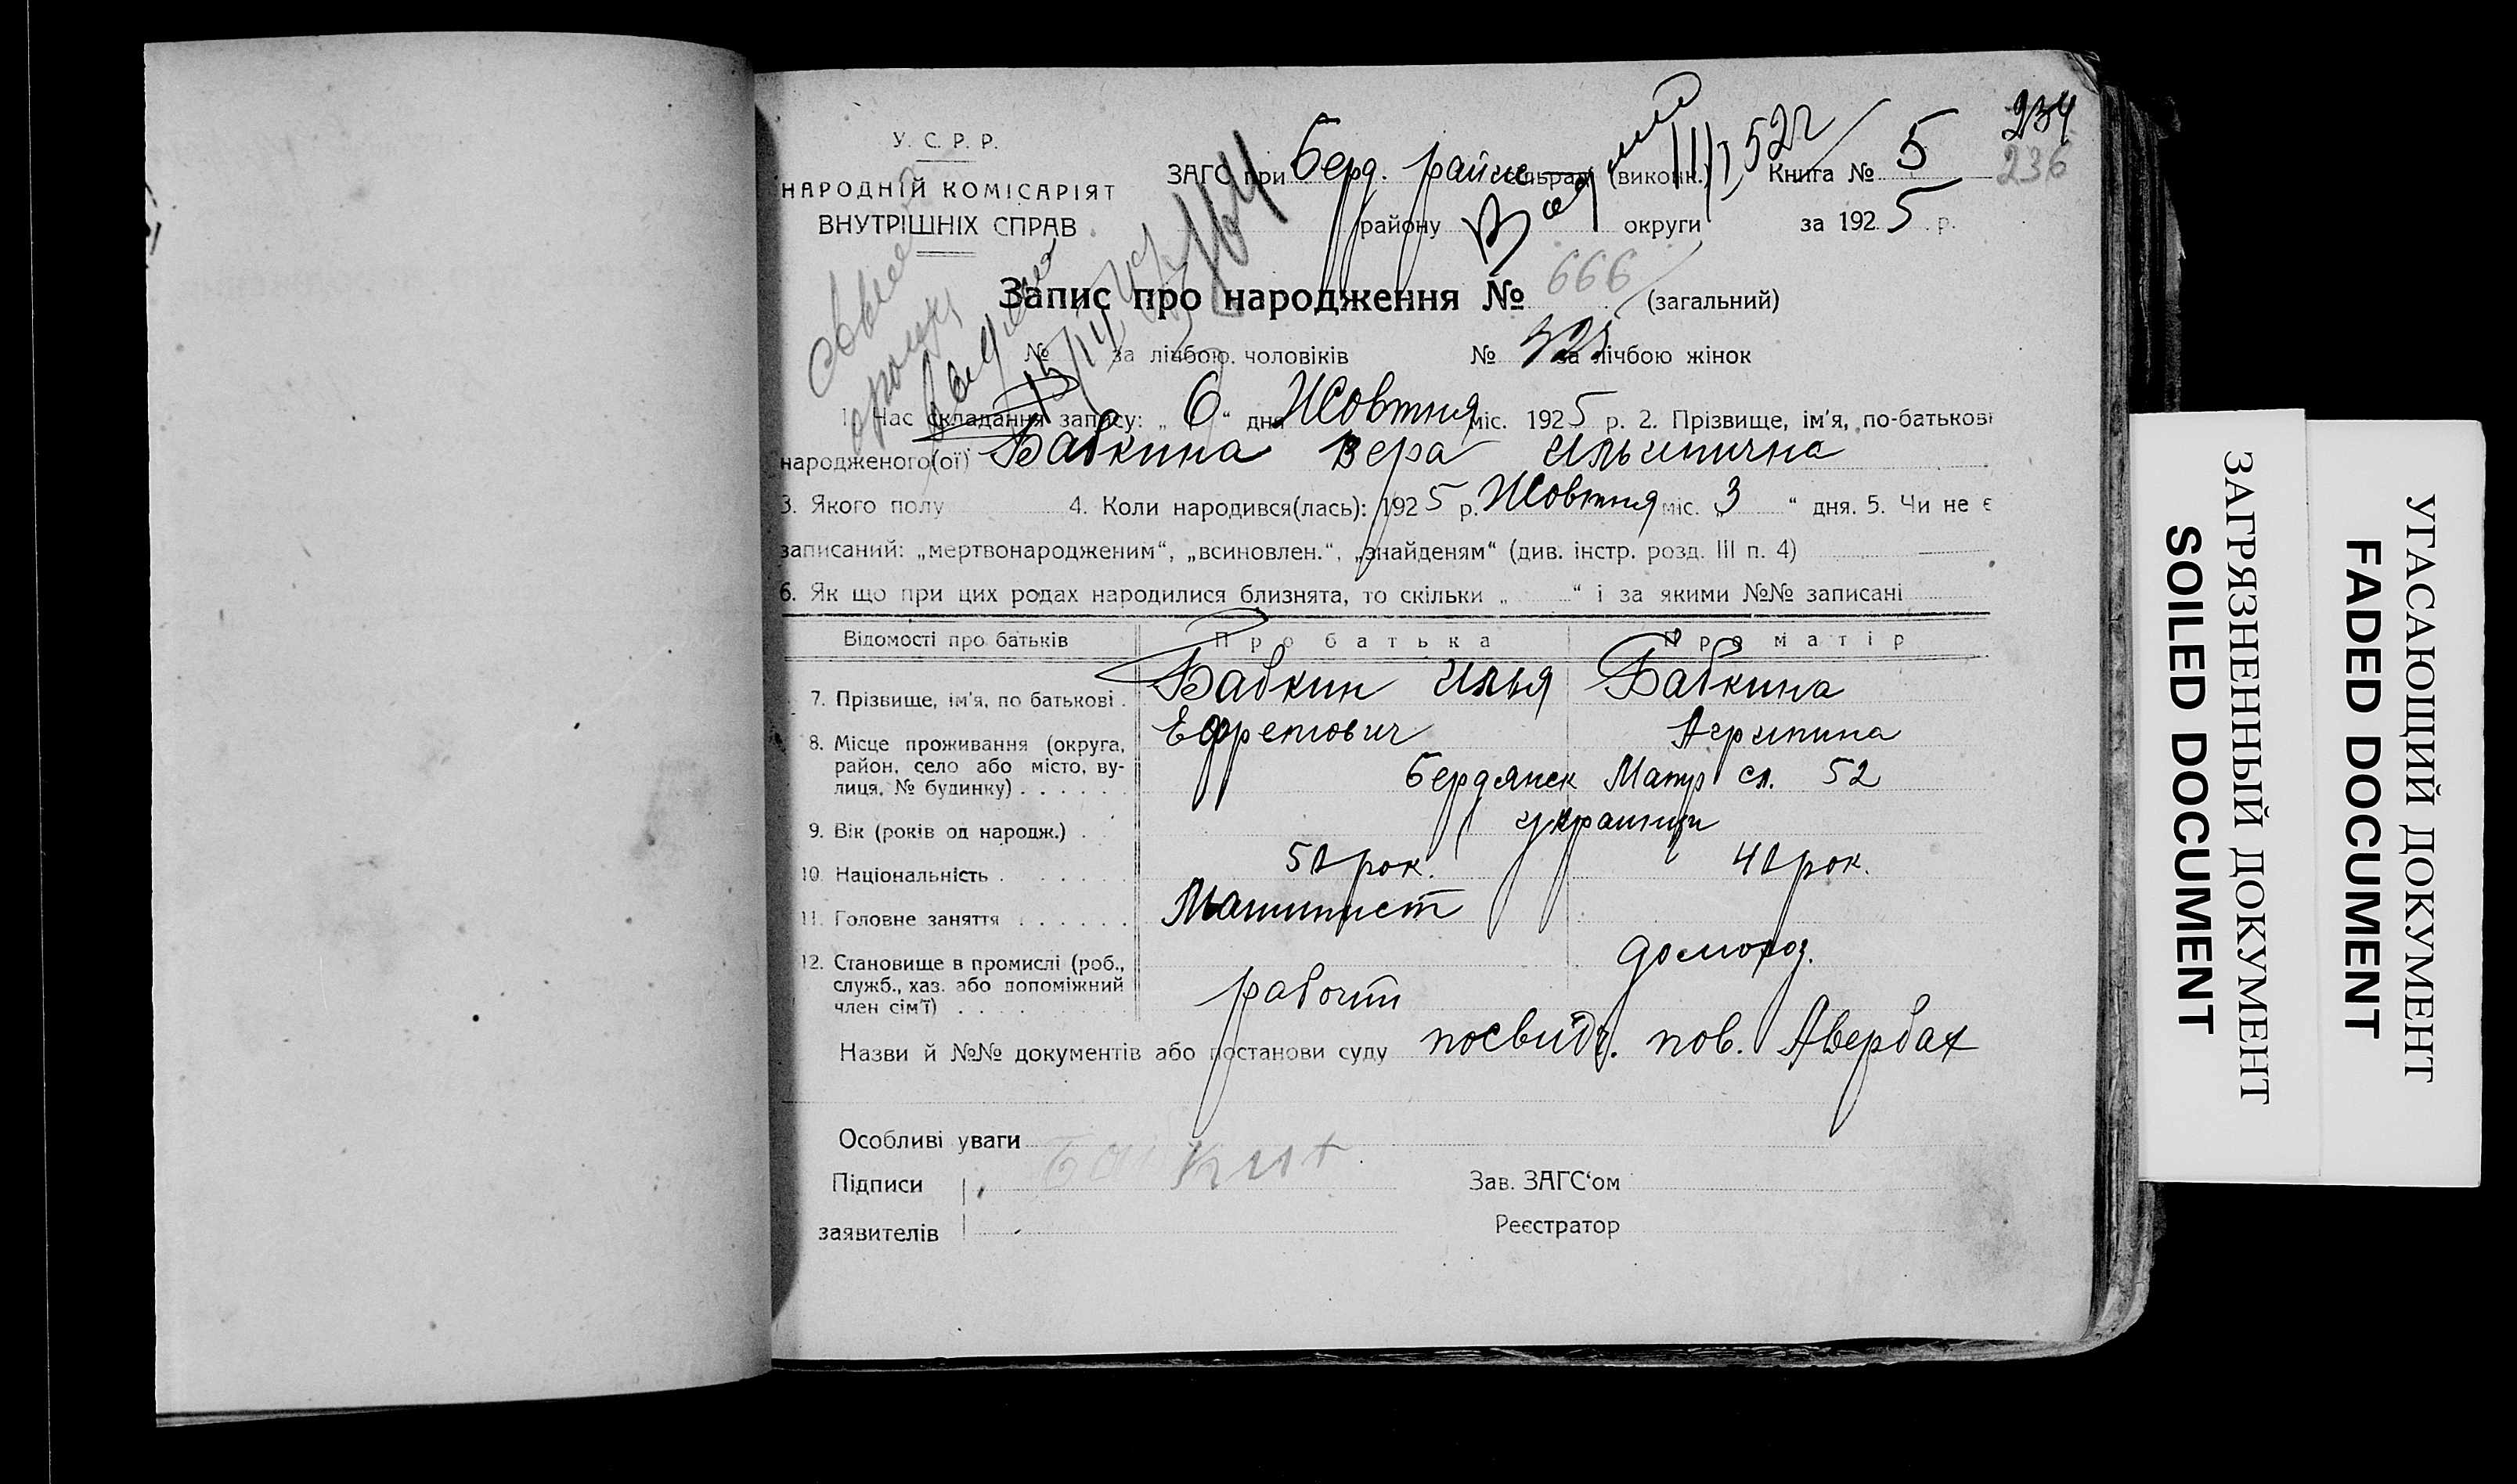 234
236
У. С. Р. Р.
НАРОДНІЙ КОМІСАРІЯТ
ВНУТРІШНІХ СПРАВ
ЗАГС при Берд. райис сільрад (виконк.) Книга № 5
району округи за 1925 р.
Запис про народження № 666 (загальний)
№ за лічбою чоловіків № за лічбою жінок
1. Час складання запису: „6“ дня Жовтня міс. 1925 р. 2. Прізвище, ім'я, по-батькові
народженого(ої) Бабкина Вера Ильинична
3. Якого полу 4. Коли народився(лась): 1925 р. Жовтня міс. „3“ дня. 5. Чи не є
записаний: „мертвонародженим“, „всиновлен.“, „знайденям“ (див. інстр. розд. III п. 4)
6. Як що при цих родах народилися близнята, то скільки „ “ і за якими №№ записані
Відомості про батьків Про батька Про матір
7. Прізвище, ім'я, по батькові Бабкин Илья Бабкина
Ефремович Агрипина
8. Місце проживання (округа,
район, село або місто, ву-
лиця, № будинку) Бердянск Матр сл. 52
9. Вік (років од народж.) українци
10. Національність 50 рок. 40 рок.
11. Головне заняття Машинист
домогоз.
12. Становище в промислі (роб.,
служб., хаз. або допоміжний
член сім'ї) рабочий
Назви й №№ документів або постанови суду посвидч. пов. Авербах
Особливі уваги
Підписи Зав. ЗАГС‘ом
заявителів Реєстратор
ЗАГРЯЗНЕННЫЙ ДОКУМЕНТ
SOILED DOCUMENT
УГАСАЮЩИЙ ДОКУМЕНТ
FADED DOCUMENT